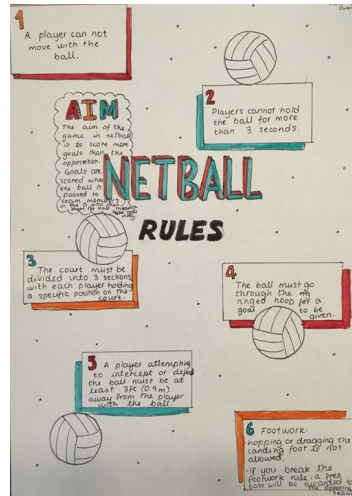 1
A player can not
move with the
ball.
AIM
The aim of the
game in netball
is to score more
goals than the
opposition.
Goals are
scored when
the ball is
passed to
team members
in the D who then
shoot the ball through
the goal
ring.
2
Players cannot hold
the ball for more
than 3 seconds.
NETBALL
RULES
3
The court must be
divided into 3 sections,
with each player holding
a specific position on the
court.
4
The ball must go
through the
ringed hoop for a
goal to be
given.
5 A player attempting
to intercept or defend
the ball must be at
least 3ft (0.9m)
away from the player
with the ball.
6 Footwork:
hopping or dragging the
landing foot is not
allowed.
·If you break the
footwork rule, a free
pass will be awarded to
the opposing
team